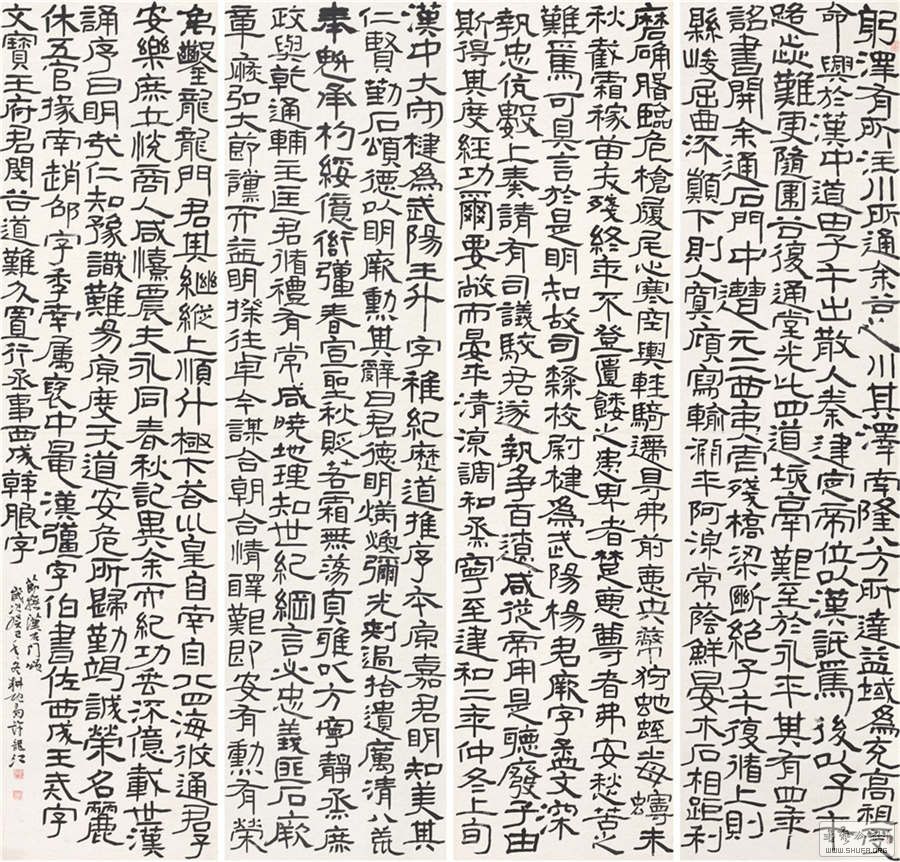 躬澤有所注川所通余谷之川其澤南隆八方所達益域為充高祖受
命興於漢中道由子午出散入秦建定帝位以漢詆焉後以子午
路歰難更隨圍谷復通堂光此四道垓鬲艱至於永平其有四年
詔書開余通石門中遭元二西夷虐殘橋梁斷絕子午復循上則
縣峻屈曲流顛下則入冥廎寫輸淵平阿涼常蔭鮮晏木石相距利
磨确臨危槍履尾心寒空輿輕騎遰㝵弗前惡虫憋狩蛇蛭毒蟃未
秋截霜稼苗夭殘終年不登匱餧之患卑者楚惡尊者弗安愁苦之
難焉可具言於是明知故司隸校尉楗為武陽楊君厥字孟文深
執忠伉數上奏請有司議駮君遂執爭百遼咸從帝用是聽廢子由
斯得其度經功爾要敞而晏平清涼調和烝寧至建和二年仲冬上旬
漢中大守楗為武陽王升字稚紀歷道推序本原嘉君明知美其
仁賢勒石頌德以明厥勳其辭曰君德明炳煥彌光刺過拾遺厲清八荒
奉魁承杓綏億衙彊春宣聖秋貶若霜無蕩貞雅以方寧靜烝庶
政與乾通輔主匡君循禮有常咸曉地理知世紀綱言必忠義匪石厥
章恢弘大節讜而益明揆往卓今謀合朝合情醳艱即安有勳有榮
禹鑿龍龍門君其繼縱上順斗極下荅巛皇自南自北四海攸通君子
安樂庶士悅商人咸憘農夫永同春秋記異余而紀功垂流億載世漢
誦序曰明哉仁知豫識難易原度天道安危所歸勤竭誠榮名麗
休五官掾南趙邵字季南屬褒中晁漢彊字伯書佐西成王戒字
文寶王府君閔谷道難久置行丞事西成韓朖字
節臨漢石門頌
歲次癸巳年冬耕許龍江
WWW.SHUFA.ORG